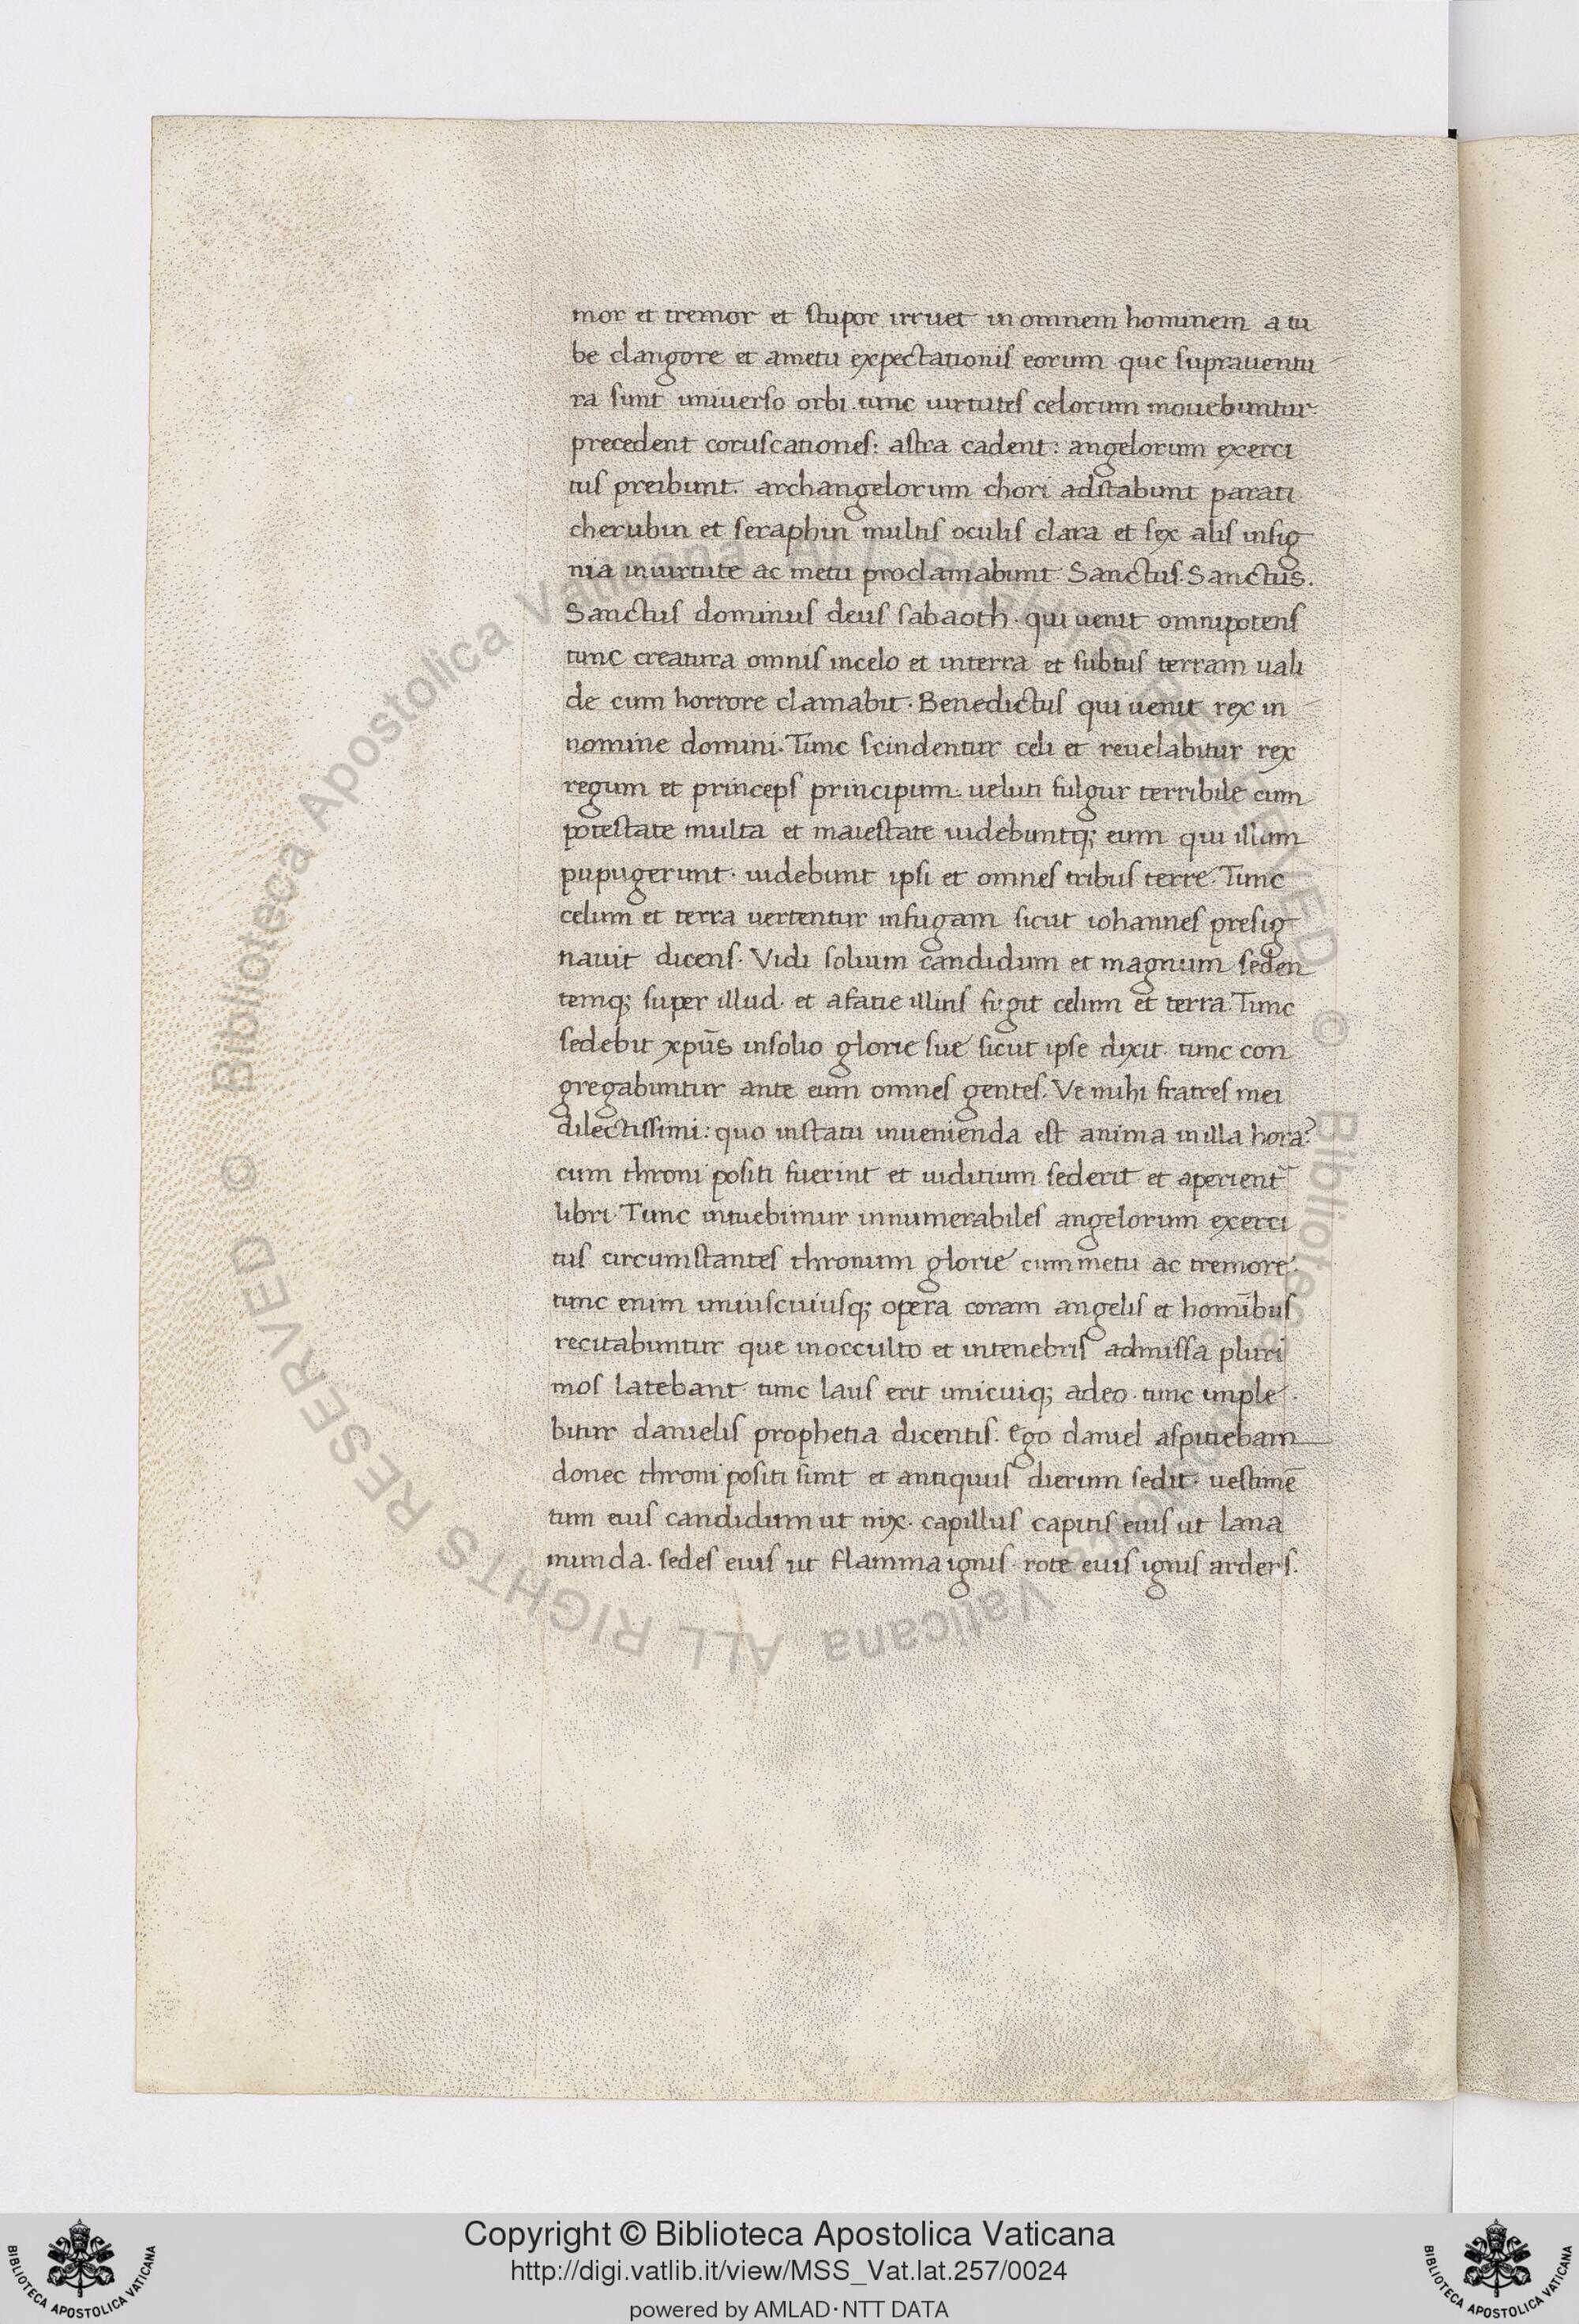 mor et tremor et stupor irruet in omnem hominem a tu
be clangore et ametu expectationis eorum que supraventu
ra sunt universo orbi. tunc virtutes celorum movebuntur.
precedent coruscationes: astra cadent: angelorum exerci
tus preibunt. archangelorum chori adstabunt parati
cherubin et seraphin multis oculis clara et sex alis insig
nia invirtute ac metu proclamabunt Sanctus. Sanctus.
Sanctus dominus deus sabaoth. qui venit omnipotens
tunc creatura omnis incelo et interra et subtus terram vali
de cum horrore clamabit. Benedictus qui venit rex in
nomine domini. Tunc scindentur celi et revelabitur rex
regum et princeps principum. veluti fulgur terribile cum
potestate multa et maiestate videbuntq; eum qui illum
pupugerunt. videbunt ipsi et omnes tribus terre. Tunc
celum et terra vertentur infugam sicut iohannes presig
navit dicens. Vidi solium candidum et magnum seden
temq; super illud. et afatie illius fugit celum et terra. Tunc
sedebit xpūs insolio glorie sue sicut ipse dixit. tunc con
gregabuntur ante eum omnes gentes. Ve mihi fratres mei
dilectissimi: quo instatu invenienda est anima inilla hora?
cum throni positi fuerint et iuditium sederit et aperient᷑
libri. Tunc intuebimur innumerabiles angelorum exerci
tus circumstantes thronum glorie cummetu ac tremore.
tunc enim uniuscuiusq; opera coram angelis et homībus
recitabuntur que inocculto et intenebris admissa pluri
mos latebant. tunc laus erit unicuiq; adeo. tunc imple
bitur danielis prophetia dicentis. Ego daniel aspitiebam
donec throni positi sunt et antiquus dierum sedit. vestimē
tum eius candidum ut nix. capillus capitis eius ut lana
munda. sedes eius ut flamma ignis. rote eius ignis ardens.
© Biblioteca Apostolica Vaticana ALL RIGHTS RESERVED © Biblioteca Apostolica Vaticana ALL RIGHTS RESERVED
Copyright © Biblioteca Apostolica Vaticana
http://digi.vatlib.it/view/MSS_Vat.lat.257/0024
powered by AMLAD·NTT DATA
BIBLIOTECA APOSTOLICA VATICANA
BIBLIOTECA APOSTOLICA VATICANA